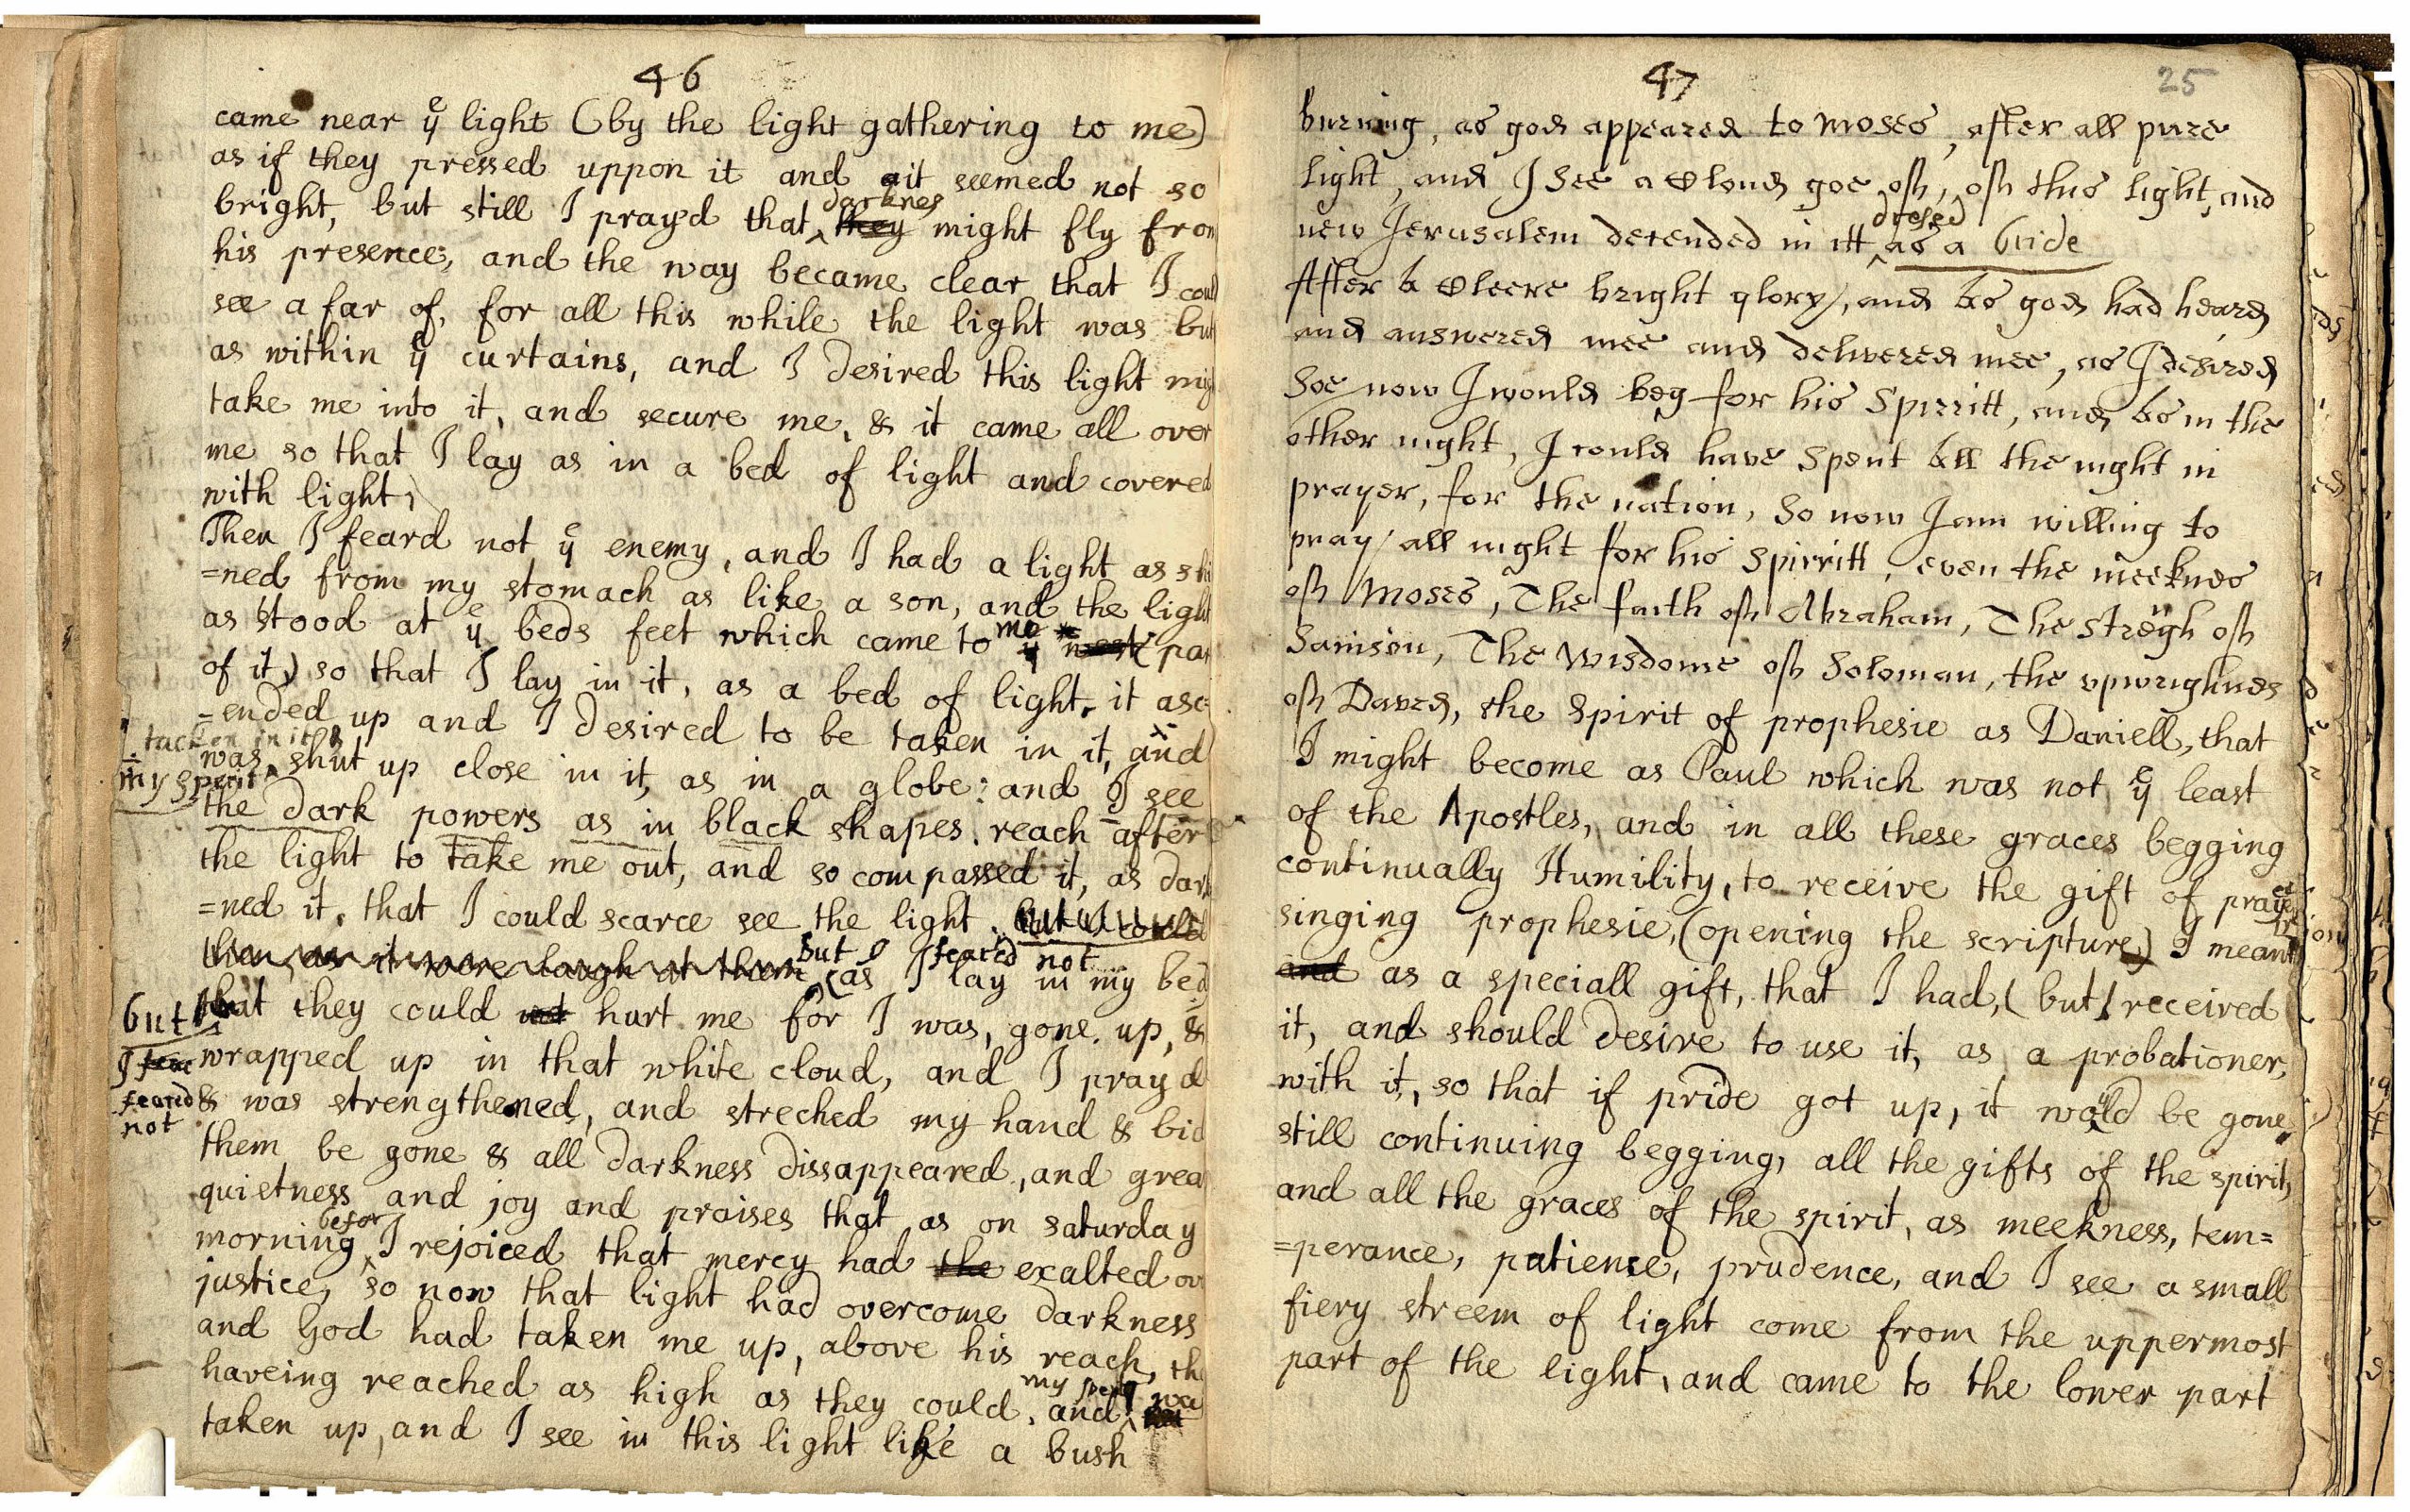 46
came near yͤ light (by the light gathering to me)
as if they pressed uppon it and it seemed not so
darknes
bright, but still I pray'd that they might fly from
his presence, and the way became clear that I coul
see a far of, for all this while the light was but
as within yͤ curtains, and I desired this light mig
take me into it, and secure me, & it came all over
me so that I lay as in a bed of light and covered
with light,
Then I feard not yͤ enemy, and I had a light as shi
=ned from my stomach as like a son, and the light
as stood at yͤ beds feet which came to me (par
of it) so that I lay in it, as a bed of light, it asc=
=ended up and I desired to be taken in it, and
tacken in it &
my sperit
was shut up close in it, as in a globe: and I see
the dark powers as in black shapes, reach after
the light to take me out, and so compassed it, as dark
=ned it, that I could scarce see the light. but I could
then, as it were laugh at them but I feared not (as I lay in my bed)
but
that they could not hurt me for I was, gone up, &
I fear
feared
not
wrapped up in that white cloud, and I pray d
& was strengthened, and streched my hand & bid
them be gone & all darkness dissappeared, and grea
quietness and joy and praises that as on saturday
befor
morning I rejoiced that mercy had the exalted ov
justice, so now that light had overcome darkness
and God had taken me up, above his reach, th
haveing reached as high as they could, and my sperit wa
taken up, and I see in this light like a bush
47
25
burning, as god appeared to Moses, after all pure
light, and I see a Cloud goe off, off this light, and
dresed
new Jerusalem decended in itt as a bride
After a Cleere bright glory, and as god had heard
and answered mee and delivered mee, as I desired
Soe now I would beg for his Spirritt, and as in the
other night, I could have Spent all the night in
prayer, for the nation, So now I am willing to
pray all night for his Spirritt, even the meeknes
off Moses, The faith off Abraham, The stregh off
Samson, The Wisdome off Soloman, the vpwrighnes
off David, the Spirit of prophesie as Daniell, that
I might become as Paul which was not yͤ least
of the Apostles, and in all these graces begging
continually Humility, to receive the gift of prayer
singing prophesie, (opening the scripture) I mean
and as a speciall gift, that I had, (but I received
it, and should desire to use it, as a probationer,
with it, so that if pride got up, it would be gone,
still continuing begging, all the gifts of the spirit,
and all the graces of the spirit, as meekness, tem=
=perance, patience, prudence, and I see a small
fiery streem of light come from the uppermost
part of the light, and came to the lower part